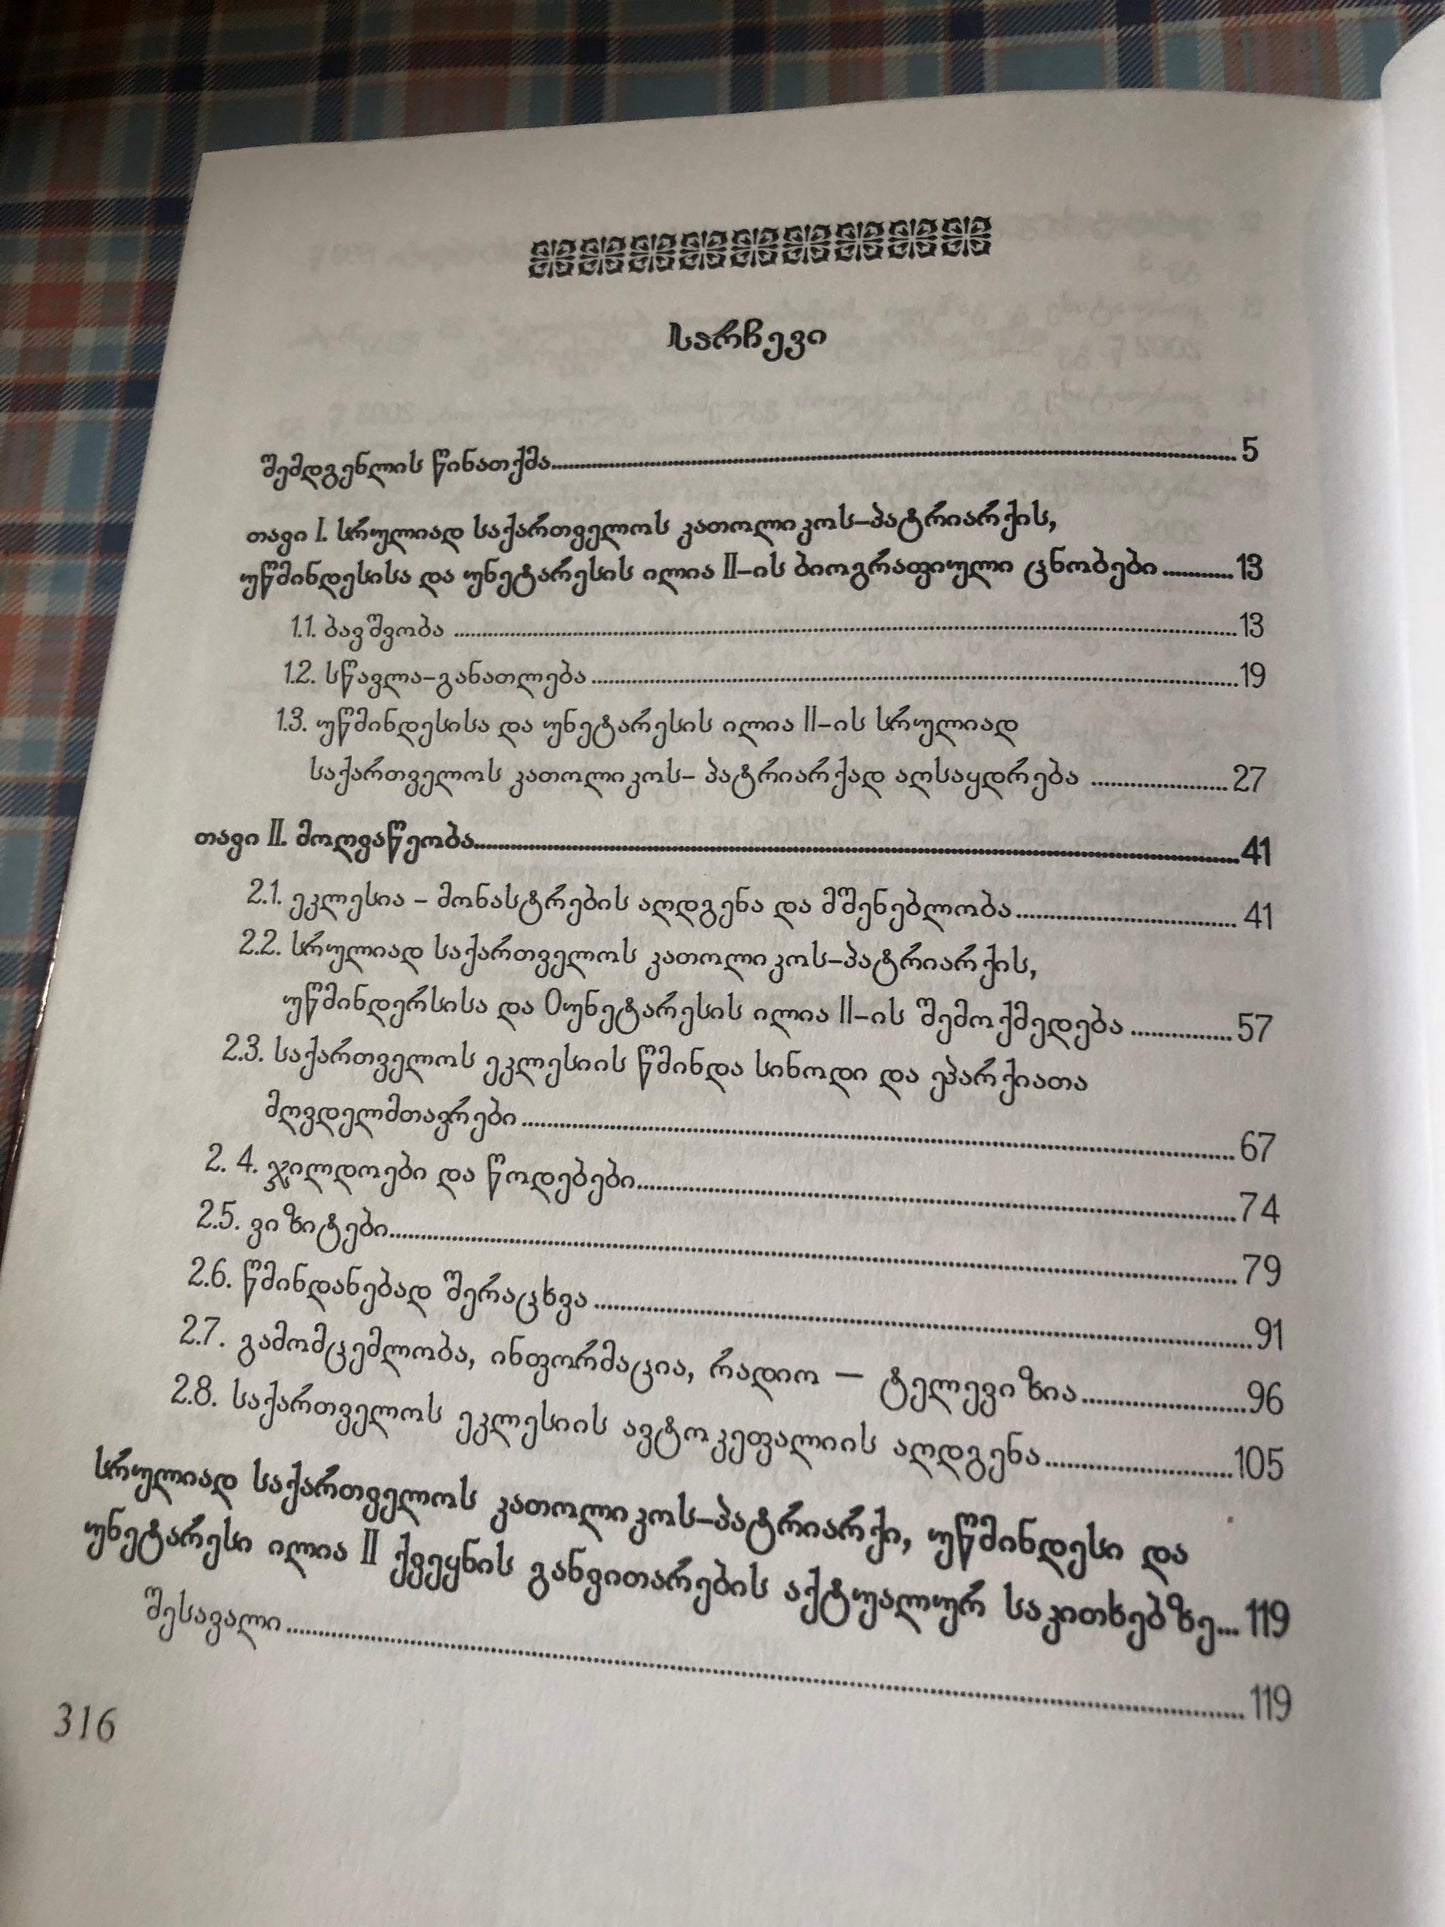 სარჩევი
შემდგენლის წინათქმა 5
თავი I. სრულიად საქართველოს კათოლიკოს-პატრიარქის,
უწმინდესისა და უნეტარესის ილია II-ის ბიოგრაფიული ცნობები 13
1.1. ბავშვობა 13
1.2. სწავლა-განათლება 19
1.3. უწმინდესისა და უნეტარესის ილია II-ის სრულიად
საქართველოს კათოლიკოს- პატრიარქად აღსაყდრება 27
თავი II. მოღვაწეობა 41
2.1. ეკლესია - მონასტრების აღდგენა და მშენებლობა 41
2.2. სრულიად საქართველოს კათოლიკოს-პატრიარქის,
უწმინდერსისა და 0უნეტარესის ილია II-ის შემოქმედება 57
2.3. საქართველოს ეკლესიის წმინდა სინოდი და ეპარქიათა
მღვდელმთავრები 67
2. 4. ჯილდოები და წოდებები 74
2.5. ვიზიტები 79
2.6. წმინდანებად შერაცხვა 91
2.7. გამომცემლობა, ინფორმაცია, რადიო — ტელევიზია 96
2.8. საქართველოს ეკლესიის ავტოკეფალიის აღდგენა 105
სრულიად საქართველოს კათოლიკოს-პატრიარქი, უწმინდესი და
უნეტარესი ილია II ქვეყნის განვითარების აქტუალურ საკითხებზე 119
შესავალი 119
316